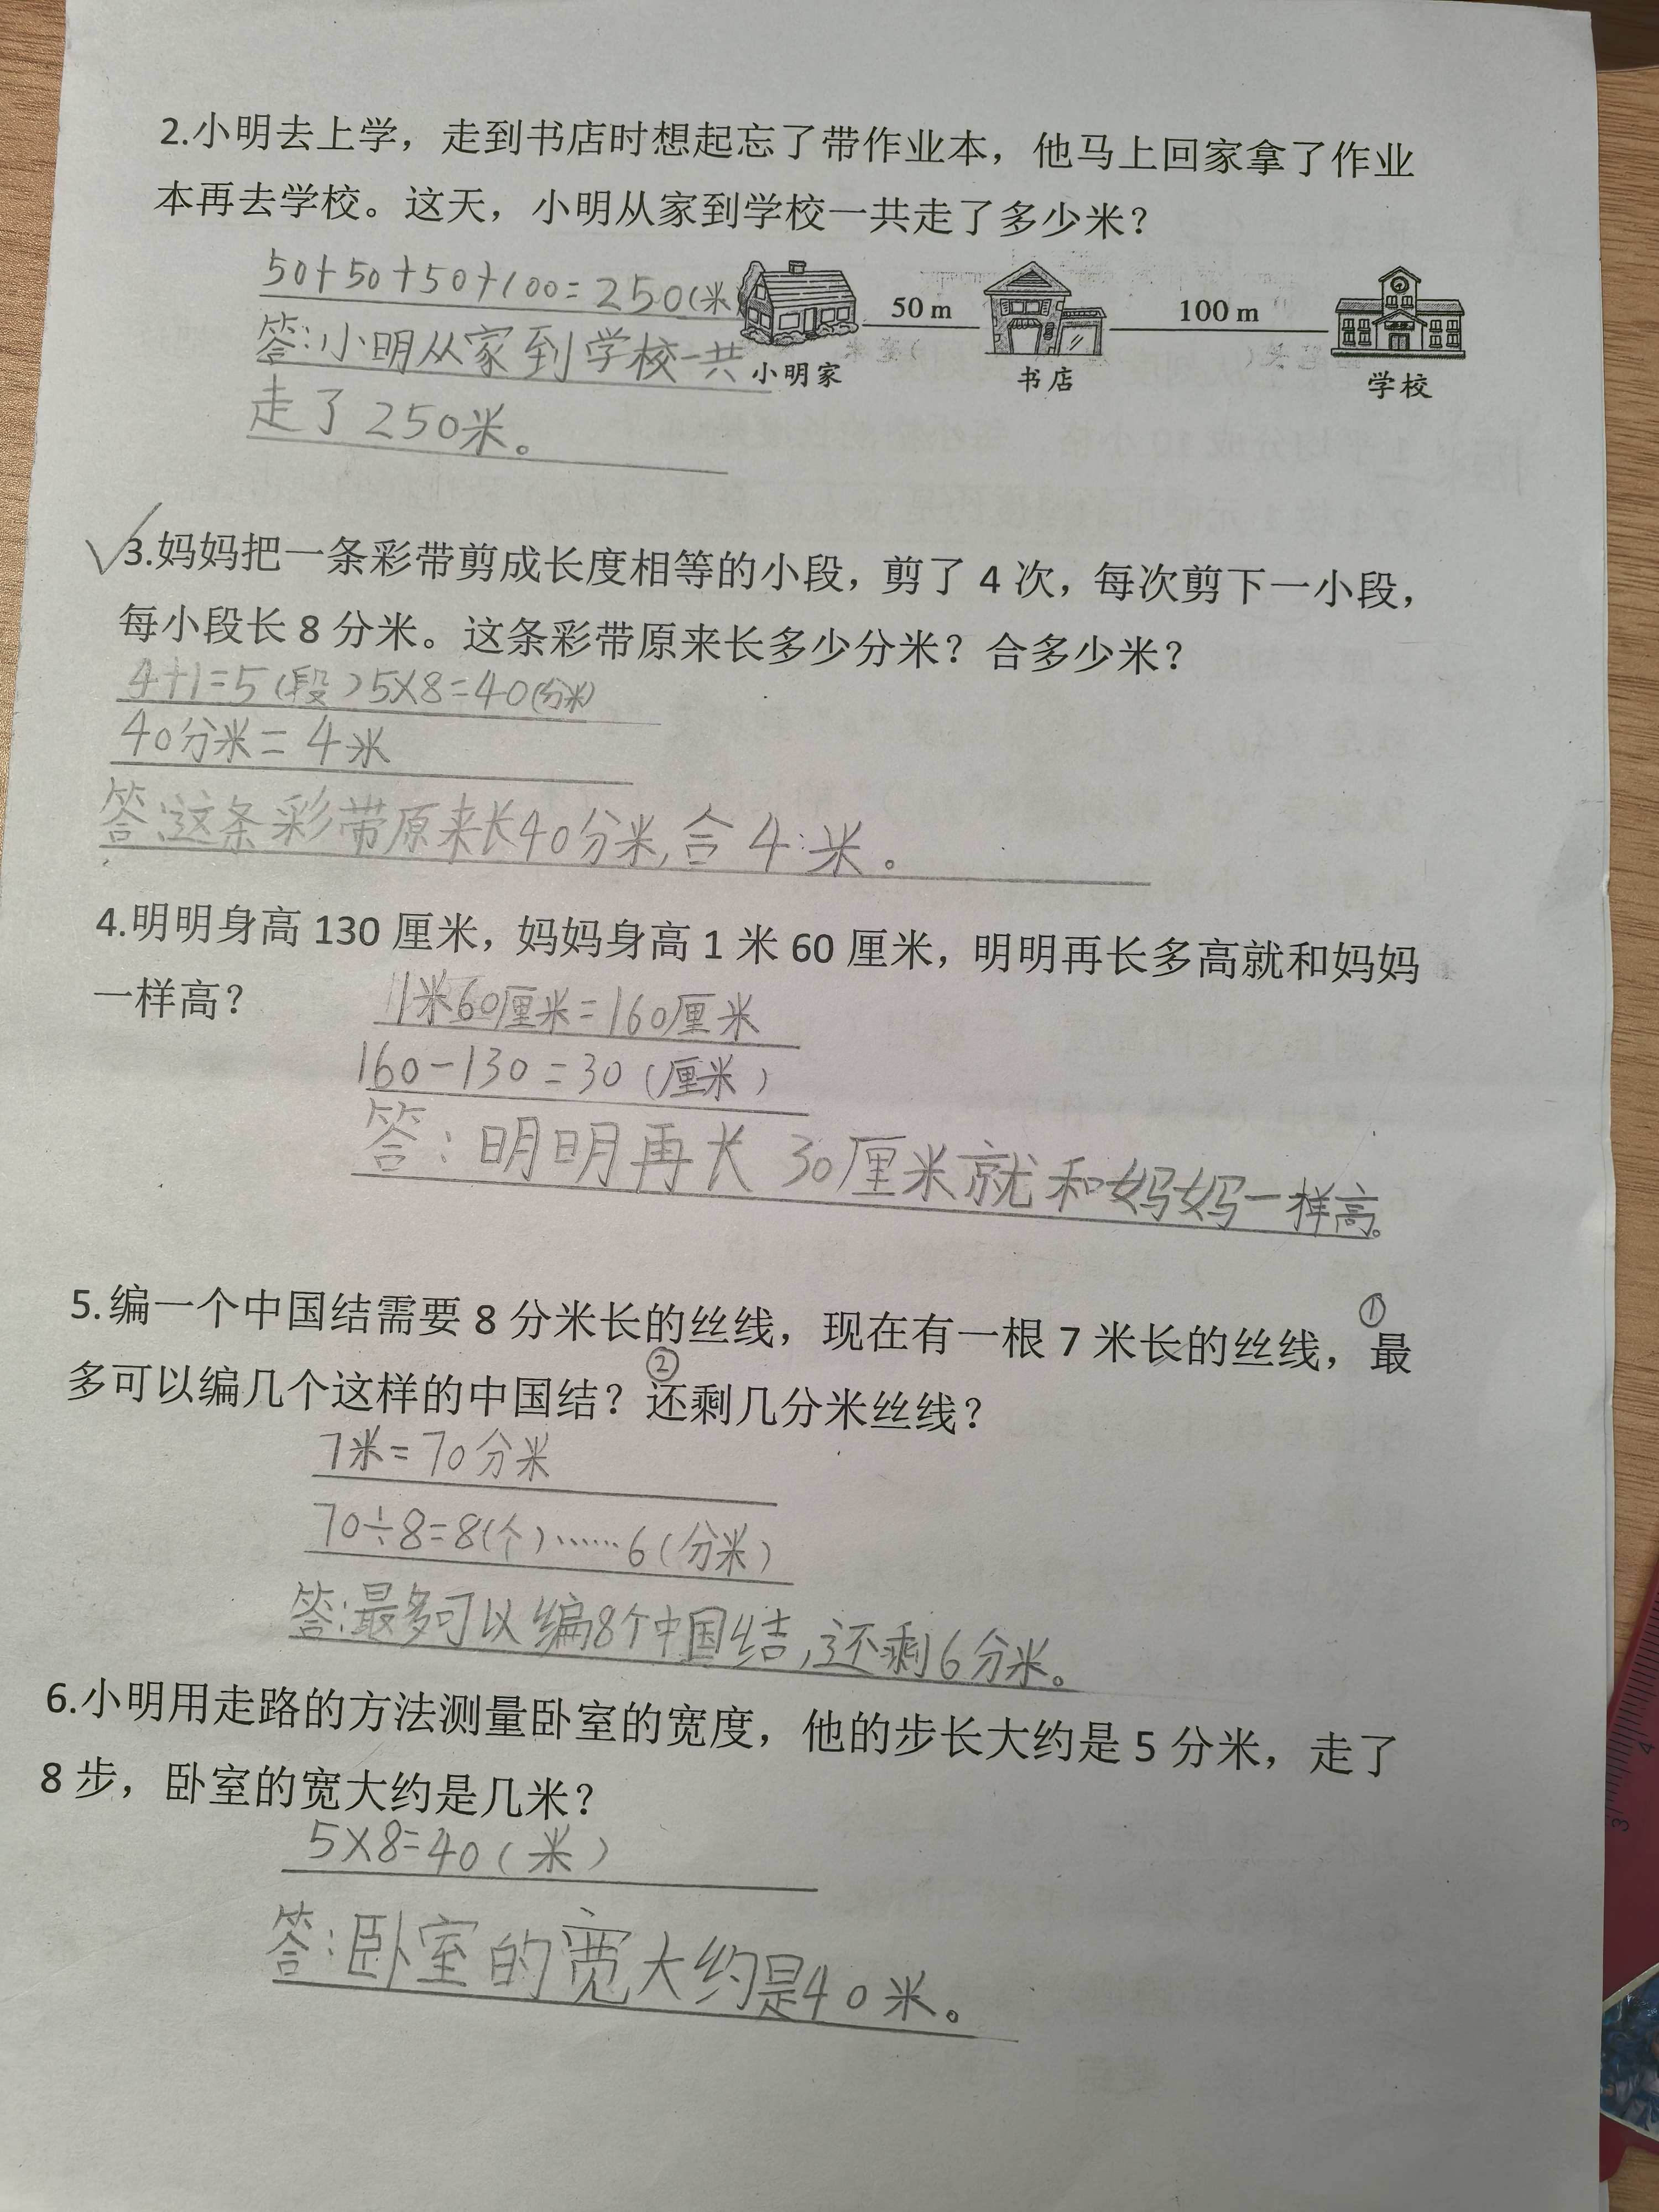 2.小明去上学，走到书店时想起忘了带作业本，他马上回家拿了作业
本再去学校。这天，小明从家到学校一共走了多少米？
50+50+50+100=250(米)
50 m
100 m
答:小明从家到学校一共
小明家
书店
学校
走了250米。
3.妈妈把一条彩带剪成长度相等的小段，剪了 4 次，每次剪下一小段，
每小段长 8 分米。这条彩带原来长多少分米？合多少米？
4+1=5(段)5×8=40(分米)
40分米=4米
答:这条彩带原来长40分米,合4米。
4.明明身高 130 厘米，妈妈身高 1 米 60 厘米，明明再长多高就和妈妈
一样高？
1米60厘米=160厘米
160-130=30(厘米)
答:明明再长30厘米就和妈妈一样高。
①
5.编一个中国结需要 8 分米长的丝线，现在有一根 7 米长的丝线，最
②
多可以编几个这样的中国结？还剩几分米丝线？
7米=70分米
70÷8=8(个)……6(分米)
答:最多可以编8个中国结,还剩6分米。
6.小明用走路的方法测量卧室的宽度，他的步长大约是 5 分米，走了
8 步，卧室的宽大约是几米？
5×8=40(米)
答:卧室的宽大约是40米。
4
3